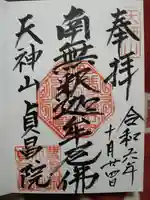 奉拝
令和六年
十月廿四日
南無釈迦牟尼佛
天神山 貞昌院